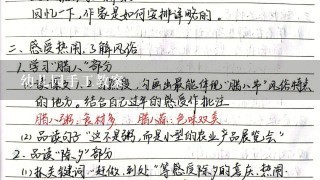 回忆一下,作家是如何安排详略的。
二、感受热闹,了解风俗
1. 学习“腊八”部分
1-2自然段,勾画出最能体现“腊八节”风俗特点
的地方。结合自己过年的感受作批注
腊八粥:食材多 腊八蒜:色味双美
(2) 品读句子“这不是粥,而是小型的农业产品展览会”
2. 品读“除夕”部分
(1) 抓关键词“赶做,到处”等感受除夕的喜庆、热闹